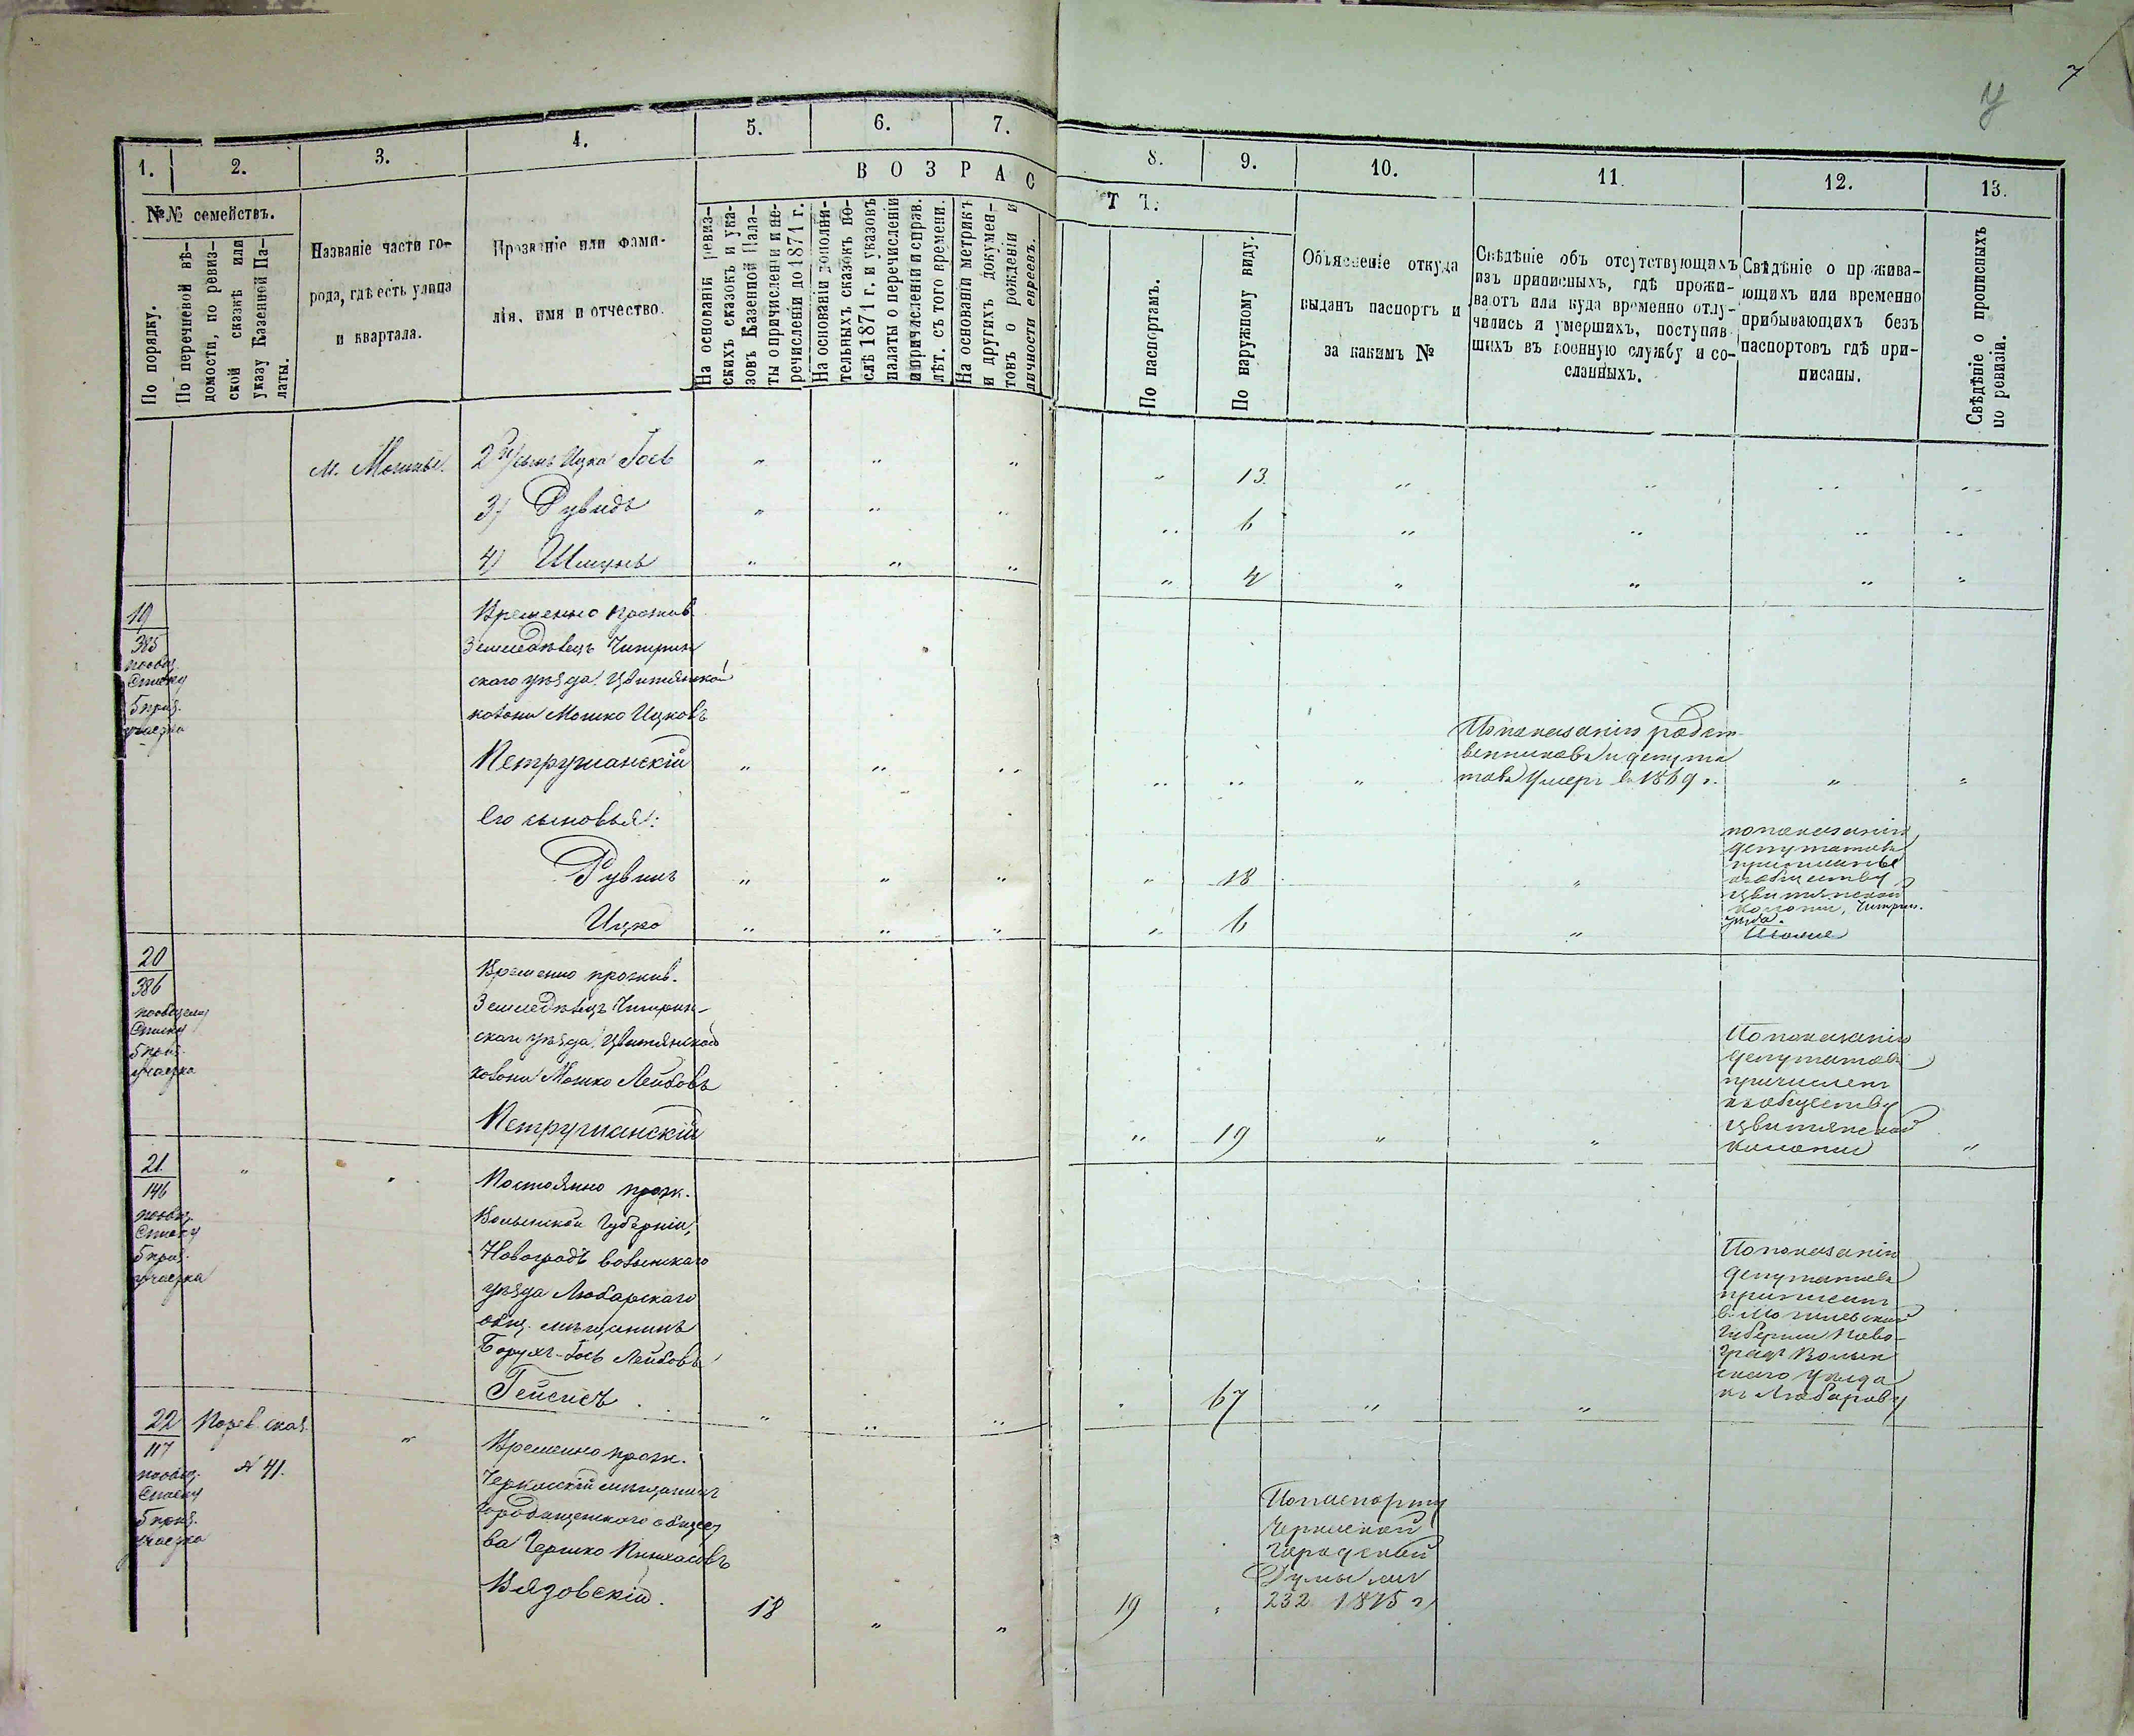 7
У
1.
2.
3.
4.
5.
6.
7.
8.
9.
10.
11.
12.
13.
ВОЗРАС
ТЪ.
№№ семействъ.
По порядку.
По перечневой вѣ-
домости, по ревиз-
ской сказкѣ или
указу Казенной Па-
латы.
Названіе части го-
рода, гдѣ есть улица
и квартала.
Прозваніе или фами-
лія, имя и отчество.
На основаніи ревиз-
скихъ сказокъ и ука-
зовъ Казенной Пала-
ты о причисленіи и пе-
речисленіи до 1871 г.
На основаніи дополни-
тельныхъ сказокъ по-
слѣ 1871 г. и указовъ
палаты о перечисленіи
и причисленіи и справ.
лѣт. съ того времени.
На основаніи метрикъ
и другихъ докумен-
товъ о рожденіи и
личности евреевъ.
По паспортамъ.
По наружному виду.
Объясненіе откуда
выданъ паспортъ и
за какимъ №
Свѣдѣніе объ отсутствующихъ
изъ приписныхъ, гдѣ прожи-
ваютъ или куда временно отлу-
чились и умершихъ, поступив-
шихъ въ военную службу и со-
сланныхъ.
Свѣдѣніе о прожива-
ющихъ или временно
прибывающихъ безъ
паспортовъ гдѣ при-
писаны.
Свѣдѣніе о прописныхъ
по ревизіи.
м. Мошны. 2й сынъ Ицка Іось " " " " 13 " " " "
3) Рувидъ " " " " 6 " " " "
4) Шмуль " " " " 4 " " " "
19
385
по общ.
списку
5 приз.
участка
Временно прожив.
Земледѣлецъ Чигрин
скаго уѣзда Цвитянской
колоніи Мошко Ицковъ
Петрушанскій " " " " " "
По показанію родст
венниковъ и депута
товъ умеръ въ 1869 г. " "
Его сыновья:
Рувинъ " " " " 18 "
Ицко " " " " 6 "
по показанію
депутатовъ
приписаны
къ обществу
Цвитянской
колоніи, Чигрин.
уѣзда.
20
386
по общему
списку
5 приз.
участка
Временно прожив.
Земледѣлецъ Чигрин-
скаго уѣзда Цвитянской
колоніи Мошко Лейбовъ
Петрушанскій " 19 " "
По показанію
депутатовъ
причисленъ
къ обществу
Цвитянской
колоніи "
21
146
по общ.
списку
5 приз.
участка
" "
Постоянно прож.
Волынской губерніи,
Новоградъ волынскаго
уѣзда Любарскаго
общ. мѣщанинъ
Борухъ-Іось Лейбовъ
Гейсисъ " " " " 67 " "
По показанію
депутатовъ
приписанъ
губерніи Ново-
градъ Волын
скаго уѣзда
къ Любарову
22
117
по общ.
списку
5 приз.
участка
№ 41.
"
Временно прож.
Черкасскій мѣщанинъ
Городищенскаго общест
ва Гершко Пинхасовъ
Вязовскій. 18 " " 19 "
По паспорту
Черкасской
городской
Думы за №
232 1875 г.